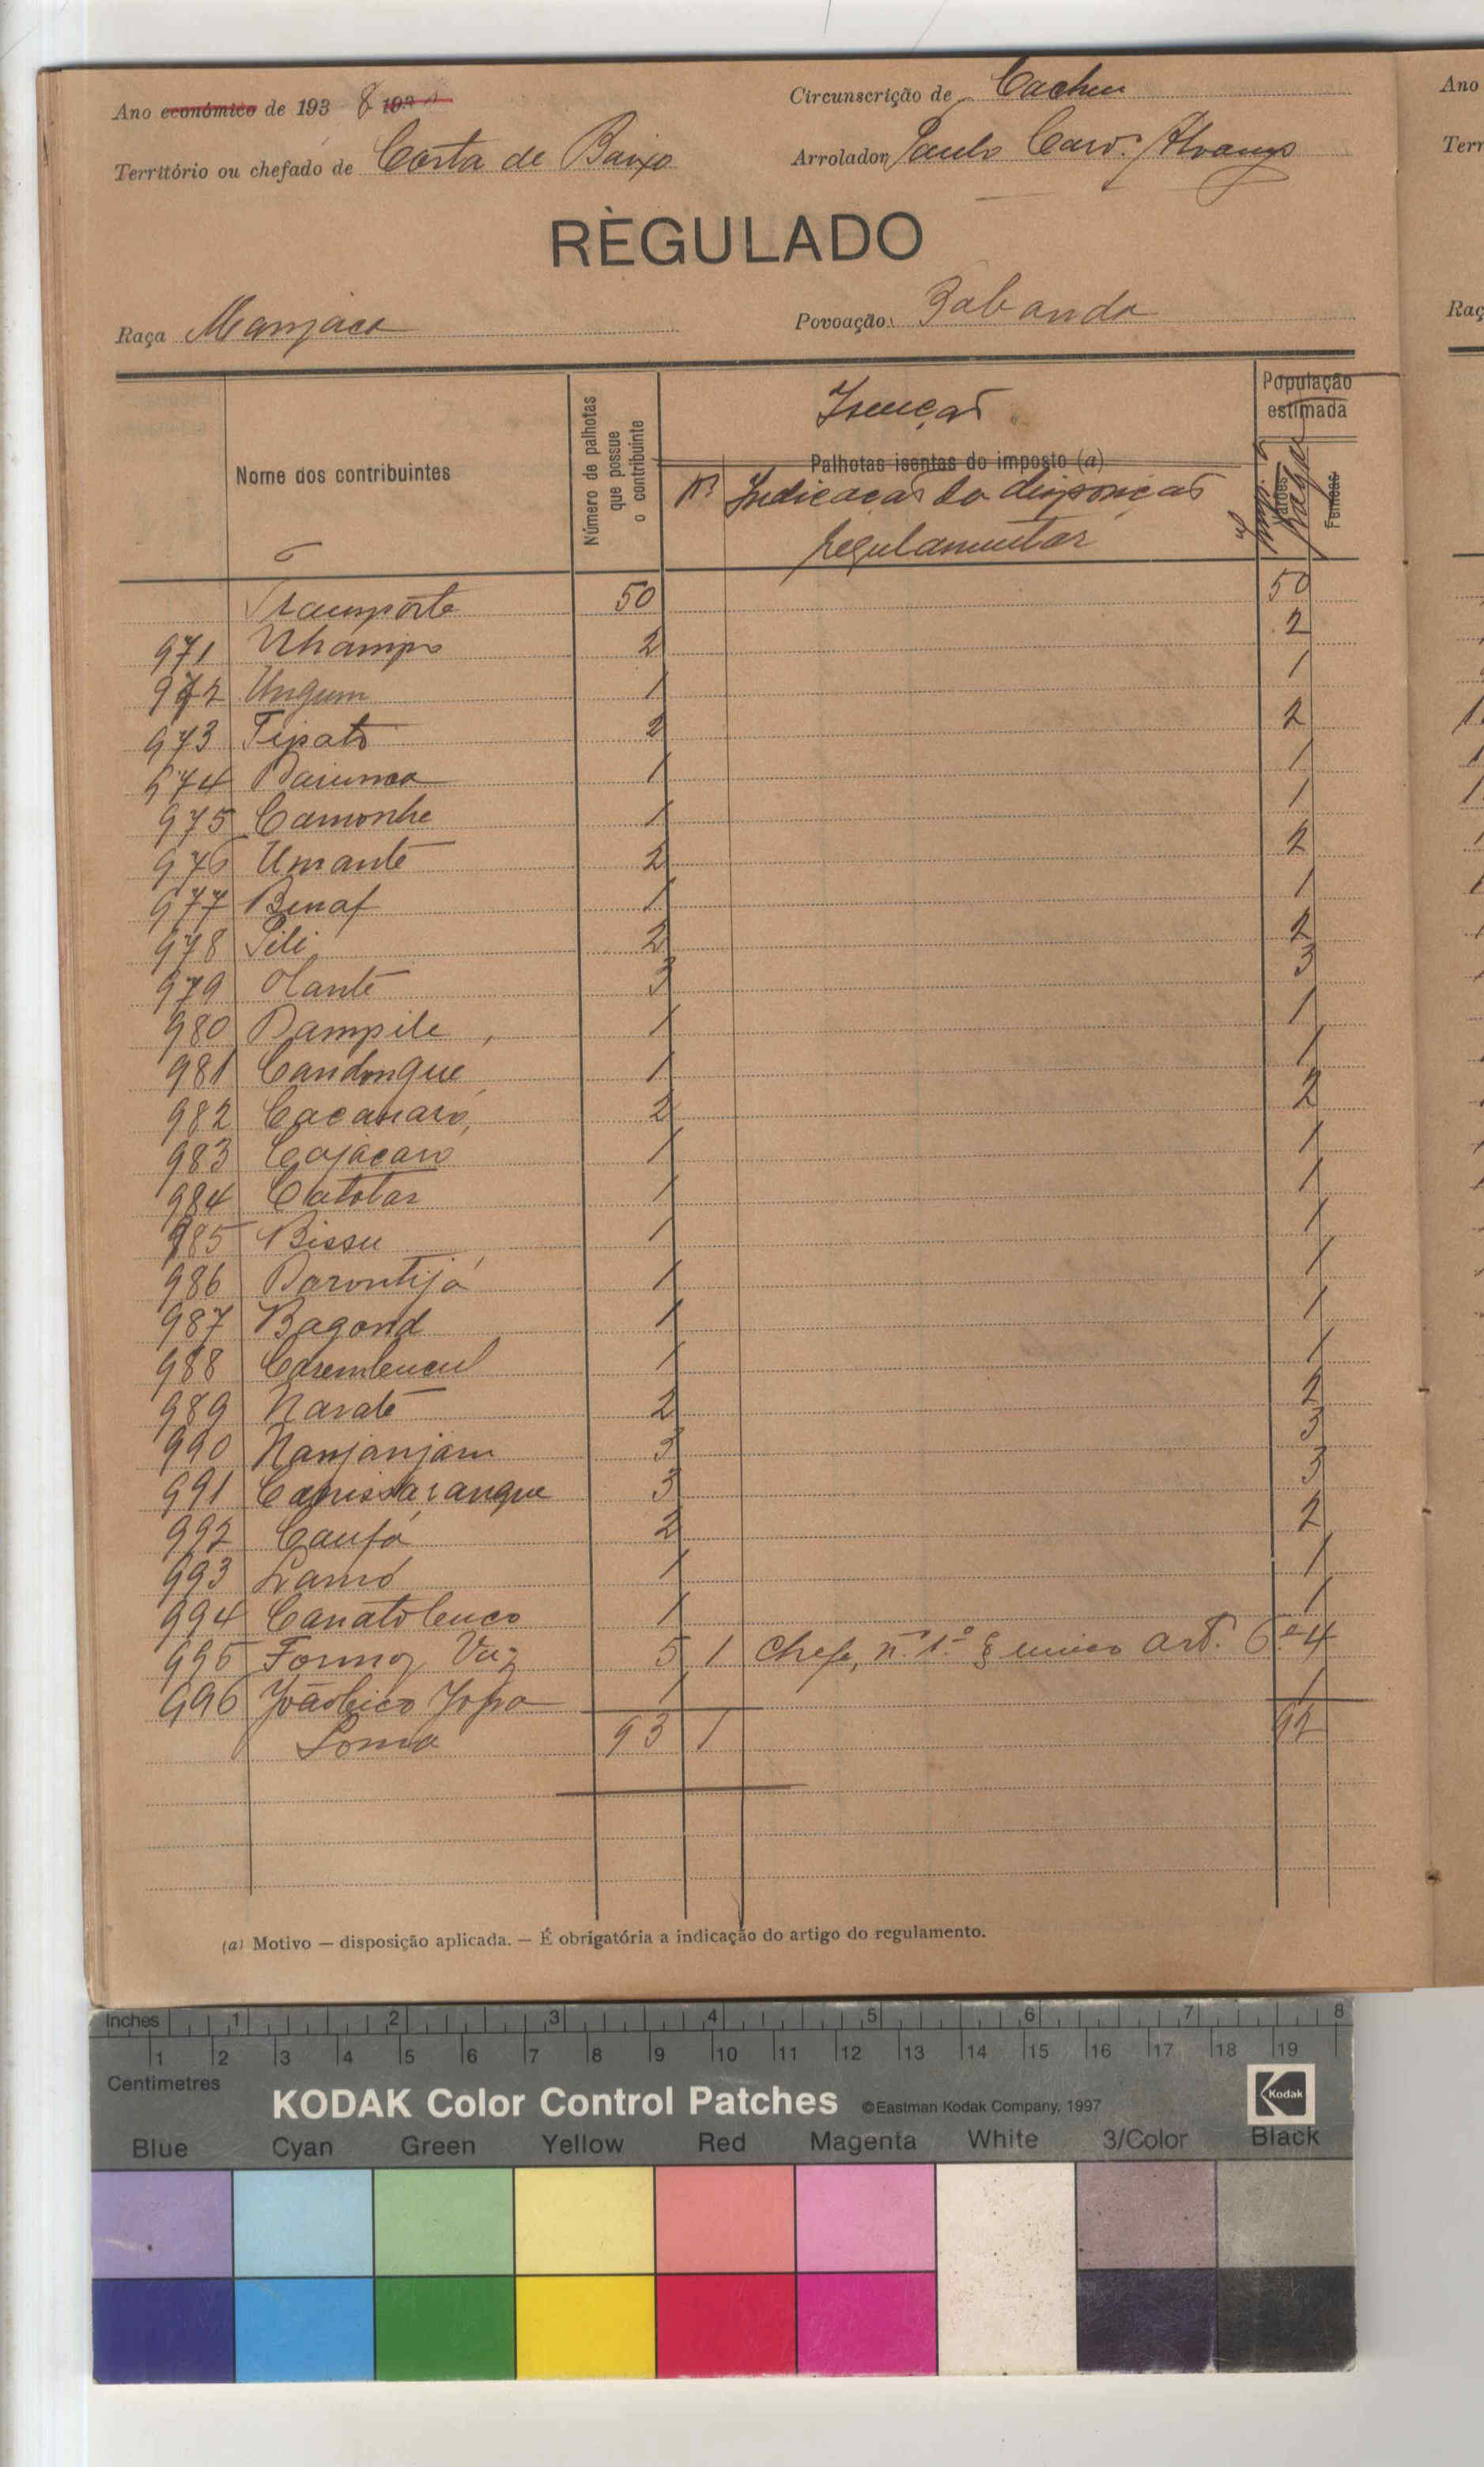 Ano económico de 193 8 193
Circunscrição de Cacheu
Território ou chefado de Costa de Baixo
Arrolador Paulo Carv.
RÈGULADO
Raça Manjaca
Povoação Babanda
Nome dos contribuintes
Número de palhotas que possue o contribuinte
Isenção
Palhotas isentas do imposto (a)
Nº Indicação da disposição
regulamentar
População estimada
Varões
Fêmeas
Transporte 50 50
971 Nhampo 2 2
972 Ungum 1 1
973 Tipato 2 2
974 Bairima 1 1
975 Camonhe 1 1
976 Umante 2 2
977 Benaf 1 1
978 Pili 2 2
979 Olante 3 3
980 Dampile 1 1
981 Candongue 1 1
982 Cacanaró 2 2
983 Cajacaro 1 1
984 Catotar 1 1
985 Bissu 1 1
986 Barontijá 1 1
987 Bagond 1 1
988 1 1
989 Narate 2 2
990 Nanjanjam 3 3
991 Canissarangue 3 3
992 Caufá 2 2
993 Lamó 1 1
994 Canatobenco 1 1
995 Vaz 5 1 Chefe, nº 1º § unico art. 6º 4
996 1 1
Soma 93 1 92
(a) Motivo — disposição aplicada. — É obrigatória a indicação do artigo do regulamento.
Ano
Terr
Raç
Inches 1 2 3 4 5 6 7 8
1 2 3 4 5 6 7 8 9 10 11 12 13 14 15 16 17 18 19
Centimetres
KODAK Color Control Patches ©Eastman Kodak Company, 1997 Kodak
Blue Cyan Green Yellow Red Magenta White 3/Color Black